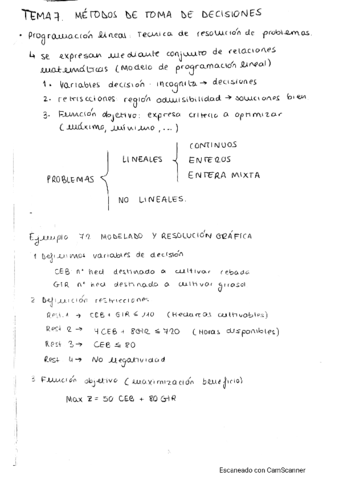 TEMA 7. MÉTODOS DE TOMA DE DECISIONES
• Programación lineal. Técnica de resolución de problemas.
↳ se expresan mediante conjunto de relaciones
matemáticas (Modelo de programación lineal)
1. Variables decisión - incognita → decisiones
2. retricciones región admisibilidad → soluciones bien
3. Función objetivo: expresa criterio a optimizar
(máximo, mínimo, ...)
CONTINUOS
LINEALES
ENTEROS
ENTERA MIXTA
PROBLEMAS
NO LINEALES.
Ejemplo 7.2 MODELADO Y RESOLUCIÓN GRÁFICA
1 Definimos variables de decisión
CEB nº hed destinado a cultivar cebada
GIR nº hed destinado a cultivar girasol
2 Definición restricciones
Rest. 1 → CEB + GIR ≤ 110 (Hectáreas cultivables)
Rest 2 → 4CEB + 8GIR ≤ 720 (Horas disponibles)
Rest 3 → CEB ≤ 80
Rest 4 → No Negatividad
3 Función objetivo (maximización beneficio)
Max Z = 50 CEB + 80 GIR
Escaneado con CamScanner